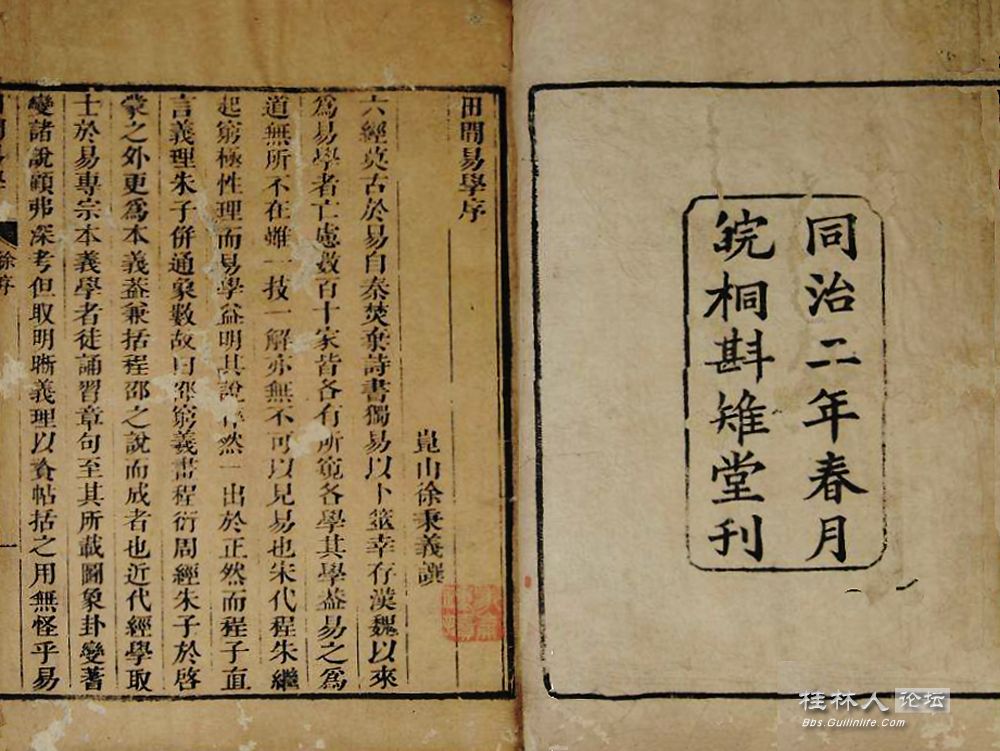 同治二年春月
皖桐斟雉堂刊
田間易學序
崑山徐秉義譔
六經莫古於易自秦焚棄詩書獨易以卜筮幸存漢魏以來
爲易學者亡慮數百十家皆各有所窺各學其學葢易之爲
道無所不在雖一技一解亦無不可以見易也宋代程朱繼
起窮極性理而易學益明其說粹然一出於正然而程子直
言義理朱子併通象數故曰邵窮羲畫程衍周經朱子於啓
蒙之外更爲本義葢兼括程邵之說而成者也近代經學取
士於易專宗本義學者徒誦習章句至其所載圖象卦變蓍
變諸說顧弗深考但取明晰義理以資帖括之用無怪乎易
徐序
桂林人论坛
Bbs.Guilinlife.com